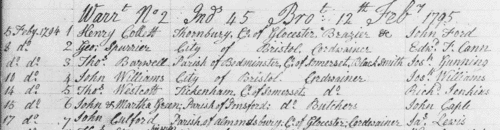 Warrt. No 2 Ind 45 Brot. 12th Feby. 1795
5 Feby. 1794 1 Henry Collett Thornbury, C. of Glocester Brazier &c John Ford
8 do. 2 Geo: Spurrier City of Bristol Cordwainer Edwd. T. Cann
do. do. 3 Thos. Barwell Parish of Bedminster, C. of Somerset, Black Smith Jos: Gunning
10 do. 4 John Williams City of Bristol Cordwainer Jos: Williams
14 do. 5 Thos. Westcott Tickenham, C. of Somerset, do. Richd. Jenkins
15 do. 6 John & Martha Green, Parish of Butchers John Caple
17 do. 7 John Parish of Almondsbury, C. of Glocester, Cordwainer Jas. Lewis